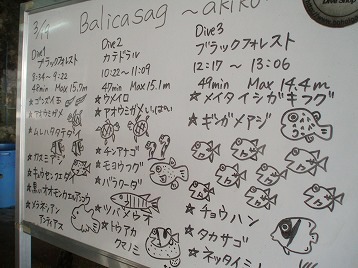 3/19
Balicasag ~akiko
Dive1
ブラックフォレスト
8:34~9:22
48min Max 15.7m
☆ゴンズイ玉
☆アオウミガメ
☆ムレハタタテダイ
☆カスミアジ
☆キュウセンフエダイ
☆黒いオオモンカエルアンコウ
☆メラネシアンアンティアス
Dive2
カテドラル
10:22~11:09
47min Max 15.1m
☆ウメイロ
☆アオウミガメ いっぱーい
☆チンアナゴ
☆モヨウフグ
☆バラクーダ
☆ツバメウオ
☆トウアカ
クマノミ
Dive3
ブラックフォレスト
12:17~13:06
49min Max 14.4m
☆メイタイシガキフグ
☆ギンガメアジ
☆チョウハン
☆タカサゴ
☆ネッタイミ